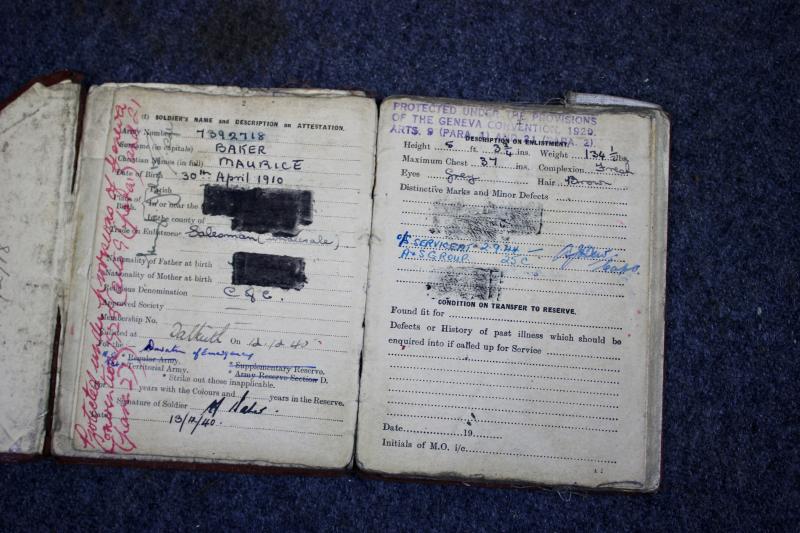 2
(I) SOLDIER'S NAME and DESCRIPTION on ATTESTATION.
Army Number 7392718
Surname (in capitals) BAKER
Christian Names (in full) MAURICE
Date of Birth 30th April 1910
Place of Birth.
Parish
In or near the
In the county of
Trade on Enlistment Salesman
Nationality of Father at birth
Nationality of Mother at birth
Religious Denomination C of E.
Approved Society
Membership No.
Enlisted at Dalkeith On 12.12.40
For the Duration of Emergency
Regular Army.
Territorial Army.
* Supplementary Reserve.
* Army Reserve Section D.
* Strike out those inapplicable.
For years with the Colours and years in the Reserve.
Signature of Soldier M Baker
Date 13/12/40.
Protected under provisions of Geneva
PROTECTED UNDER THE PROVISIONS
OF THE GENEVA CONVENTION, 1929,
ARTS. 9 (PARA. 1) AND 21 (PARA. 2)
DESCRIPTION ON ENLISTMENT
Height 5 ft. 3¾ ins. Weight 134½ lbs
Maximum Chest 37 ins. Complexion Fresh
Eyes Grey Hair Brown
Distinctive Marks and Minor Defects
CONDITION ON TRANSFER TO RESERVE.
Found fit for
Defects or History of past illness which should be
enquired into if called up for Service
Date 19
Initials of M.O. i/c.